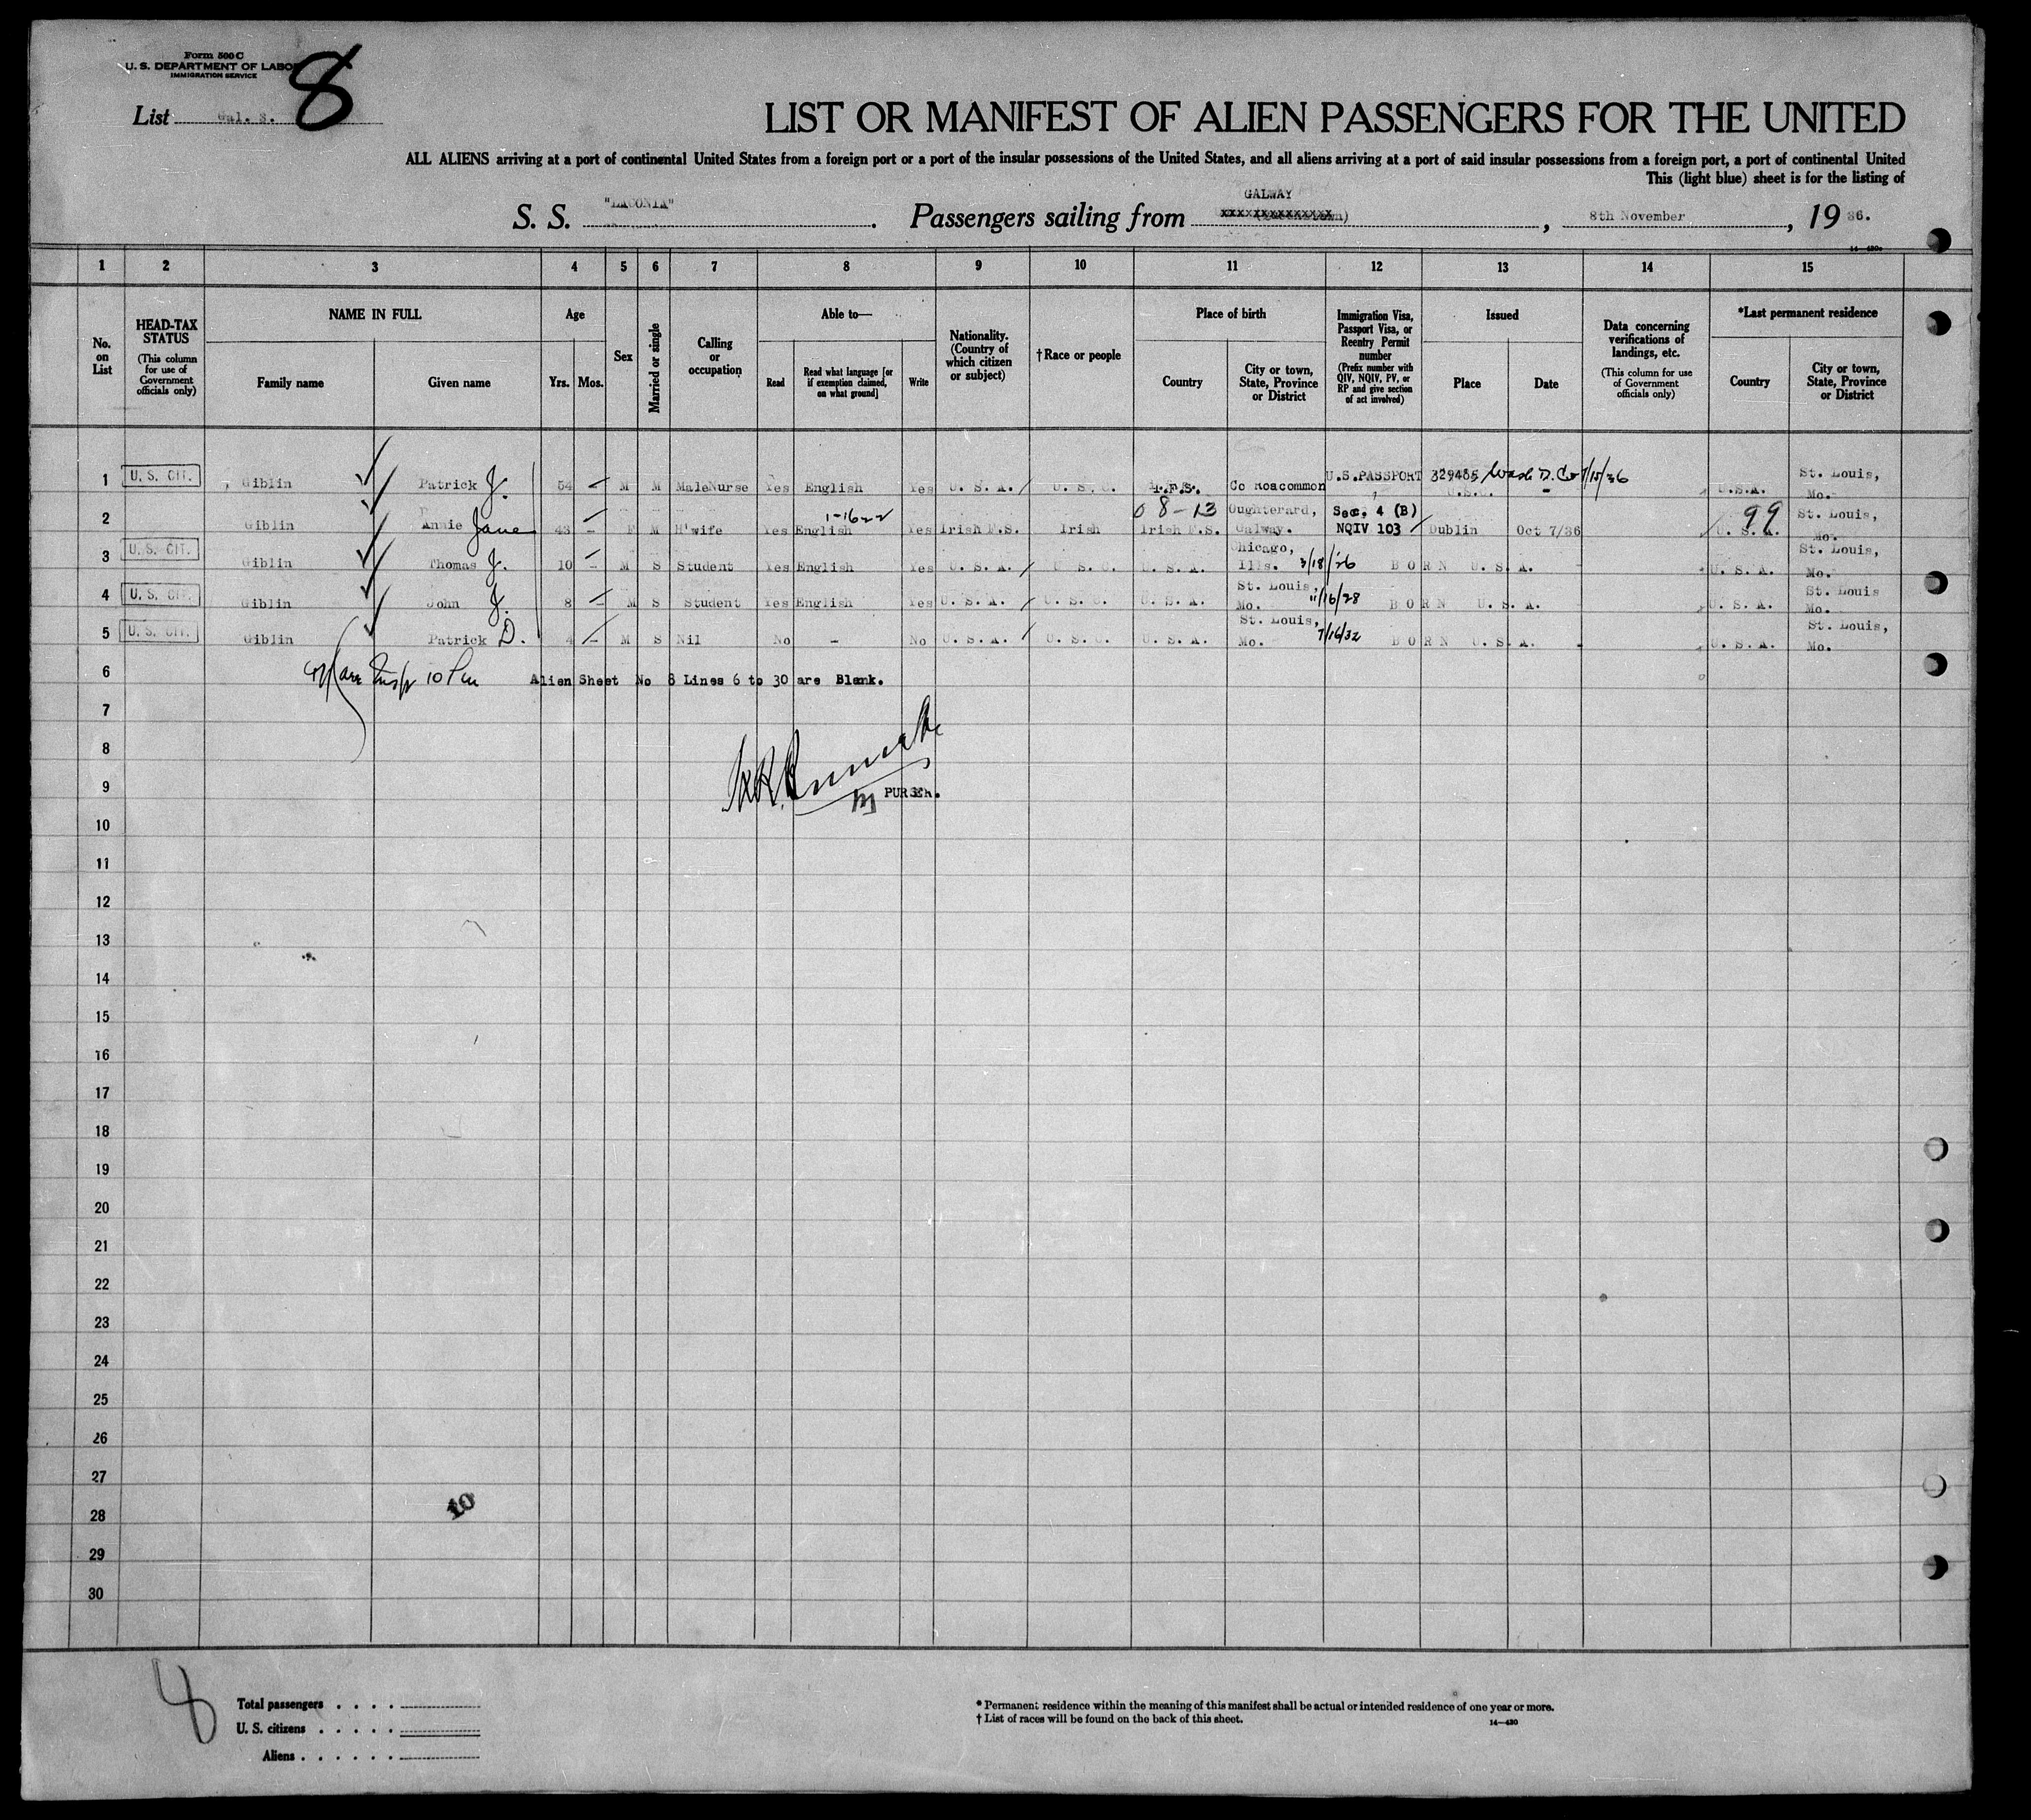 Form 500 C
U. S. DEPARTMENT OF LABOR
IMMIGRATION SERVICE
8
List Gal. S.
LIST OR MANIFEST OF ALIEN PASSENGERS FOR THE UNITED
ALL ALIENS arriving at a port of continental United States from a foreign port or a port of the insular possessions of the United States, and all aliens arriving at a port of said insular possessions from a foreign port, a port of continental United
This (light blue) sheet is for the listing of
S. S. "LACONIA". Passengers sailing from GALWAY, 8th November, 1936.
1 2 3 4 5 6 7 8 9 10 11 12 13 14 15
No. on List
HEAD-TAX STATUS (This column for use of Government officials only)
NAME IN FULL
Family name
Given name
Age
Yrs. Mos.
Sex
Married or single
Calling or occupation
Able to—
Read
Read what language [or if exemption claimed, on what ground]
Write
Nationality. (Country of which citizen or subject)
†Race or people
Place of birth
Country
City or town, State, Province or District
Immigration Visa, Passport Visa, or Reentry Permit number (Prefix number with QIV, NQIV, PV, or RP and give section of act involved)
Issued
Place
Date
Data concerning verifications of landings, etc. (This column for use of Government officials only)
*Last permanent residence
Country
City or town, State, Province or District
1 U. S. CIT. Giblin Patrick J. 54 – M M MaleNurse Yes English Yes U. S. A. U. S. C. I.F.S. Co Roscommon U.S.PASSPORT 329485 Wash D. C. 7/15/36 U.S.C. - U.S.A. St. Louis, Mo.
2 Giblin Annie Jane 43 – F M H'wife Yes English 1-1622 Yes Irish F.S. Irish 08-13 Irish F.S. Oughterard, Galway. Sec, 4 (B) NQIV 103 Dublin Oct 7/36 99 U. S. A. St. Louis, Mo.
3 U. S. CIT. Giblin Thomas J. 10 – M S Student Yes English Yes U. S. A. U. S. C. U. S. A. Chicago, Ills. 3/18/'26 BORN U. S. A. U. S. A. St. Louis, Mo.
4 U. S. CIT. Giblin John J. 8 – M S Student Yes English Yes U. S. A. U. S. C. U. S. A. St. Louis, Mo. 11/16/28 BORN U. S. A. U. S. A. St. Louis Mo.
5 U. S. CIT. Giblin Patrick D. 4 – M S Nil No – No U. S. A. U. S. C. U. S. A. St. Louis, Mo. 7/16/32 BORN U. S. A. - U. S. A. St. Louis, Mo.
6 Insp 10 Alien Sheet No 8 Lines 6 to 30 are Blank.
7
8
9 PURSER.
10
11
12
13
14
15
16
17
18
19
20
21
22
23
24
25
26
27
28 10
29
30
8
Total passengers . . . .
U. S. citizens . . . . .
Aliens . . . . . .
* Permanent residence within the meaning of this manifest shall be actual or intended residence of one year or more.
† List of races will be found on the back of this sheet.
14—430